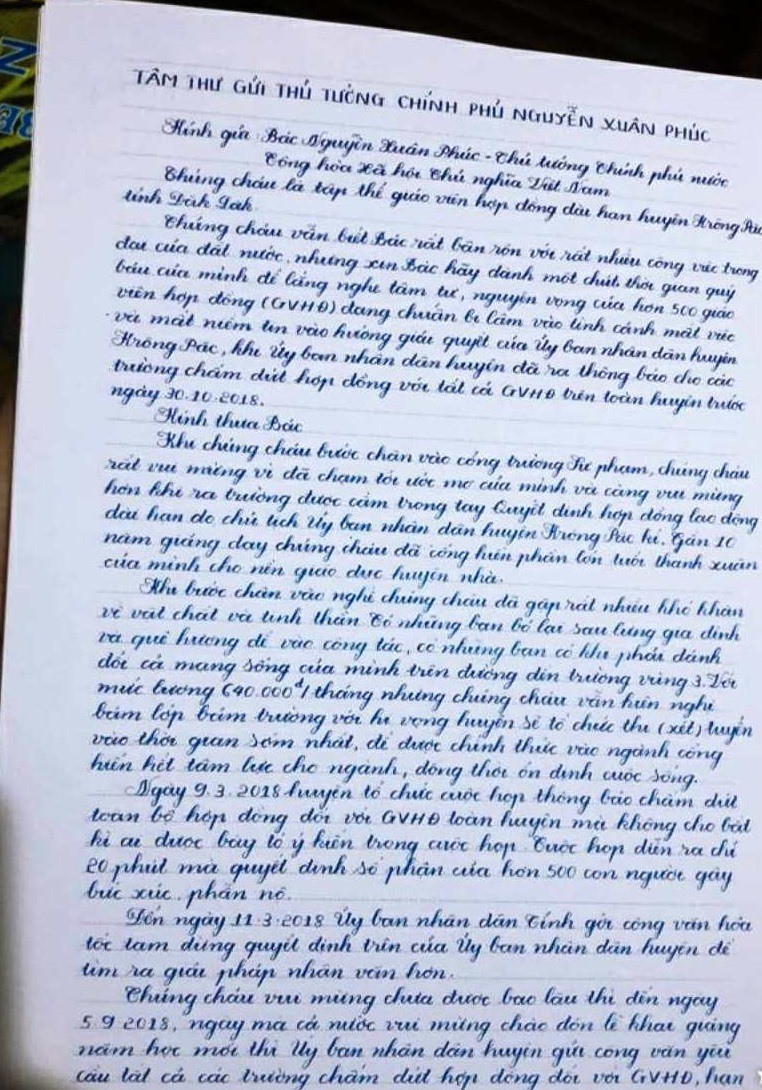 TÂM THƯ GỬI THỦ TƯỚNG CHÍNH PHỦ NGUYỄN XUÂN PHÚC
Kính gửi: Bác Nguyễn Xuân Phúc - Thủ tướng Chính phủ nước
Cộng hòa Xã hội Chủ nghĩa Việt Nam
Chúng cháu là tập thể giáo viên hợp đồng dài hạn huyện Krông Pắc
tỉnh Đắk Lắk.
Chúng cháu vẫn biết Bác rất bận rộn với rất nhiều công việc trọng
đại của đất nước, nhưng xin Bác hãy dành một chút thời gian quý
báu của mình để lắng nghe tâm tư, nguyện vọng của hơn 500 giáo
viên hợp đồng (GVHĐ) đang chuẩn bị lâm vào tình cảnh mất việc
và mất niềm tin vào hướng giải quyết của Ủy ban nhân dân huyện
Krông Pắc, khi Ủy ban nhân dân huyện đã ra thông báo cho các
trường chấm dứt hợp đồng với tất cả GVHĐ trên toàn huyện trước
ngày 30.10.2018.
Kính thưa Bác
Khi chúng cháu bước chân vào cổng trường Sư phạm, chúng cháu
rất vui mừng vì đã chạm tới ước mơ của mình và càng vui mừng
hơn khi ra trường được cầm trong tay Quyết định hợp đồng lao động
dài hạn do chủ tịch Ủy ban nhân dân huyện Krông Pắc kí. Gần 10
năm giảng dạy chúng cháu đã cống hiến phần lớn tuổi thanh xuân
của mình cho nền giáo dục huyện nhà.
Khi bước chân vào nghề chúng cháu đã gặp rất nhiều khó khăn
về vật chất và tinh thần. Có những bạn bỏ lại sau lưng gia đình
và quê hương để vào công tác, có những bạn có khi phải đánh
đổi cả mạng sống của mình trên đường đến trường vùng 3. Với
mức lương 640.000đ/tháng nhưng chúng cháu vẫn kiên nghị
bám lớp bám trường với hi vọng huyện sẽ tổ chức thi (xét) tuyển
vào thời gian sớm nhất, để được chính thức vào ngành cống
hiến hết tâm lực cho ngành, đồng thời ổn định cuộc sống.
Ngày 9.3.2018 huyện tổ chức cuộc họp thông báo chấm dứt
toàn bộ hợp đồng đối với GVHĐ toàn huyện mà không cho bất
kì ai được bày tỏ ý kiến trong cuộc họp. Cuộc họp diễn ra chỉ
20 phút mà quyết định số phận của hơn 500 con người gây
bức xúc, phẫn nộ.
Đến ngày 11.3.2018 Ủy ban nhân dân Tỉnh gởi công văn hỏa
tốc tạm dừng quyết định trên của Ủy ban nhân dân huyện để
tìm ra giải pháp nhân văn hơn.
Chúng cháu vui mừng chưa được bao lâu thì đến ngày
5.9.2018, ngày mà cả nước vui mừng chào đón lễ khai giảng
năm học mới thì Ủy ban nhân dân huyện gửi công văn yêu
cầu tất cả các trường chấm dứt hợp đồng đối với GVHĐ, hạn